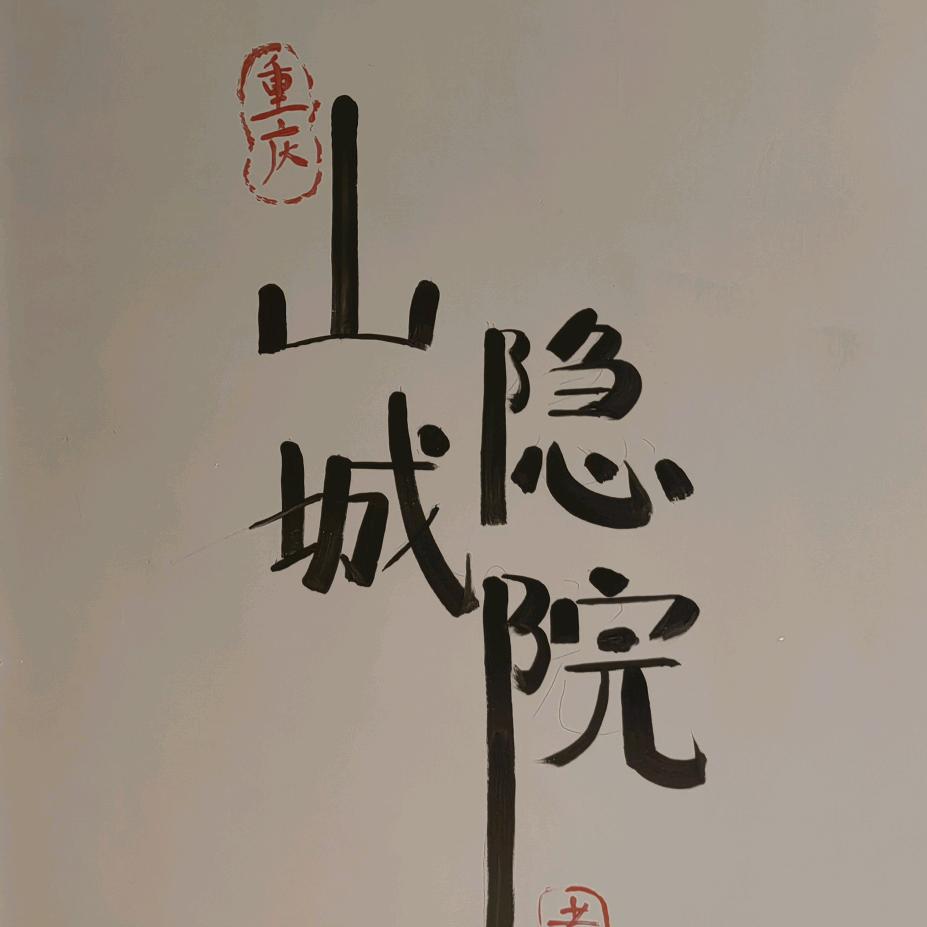 重庆
山城
隐院